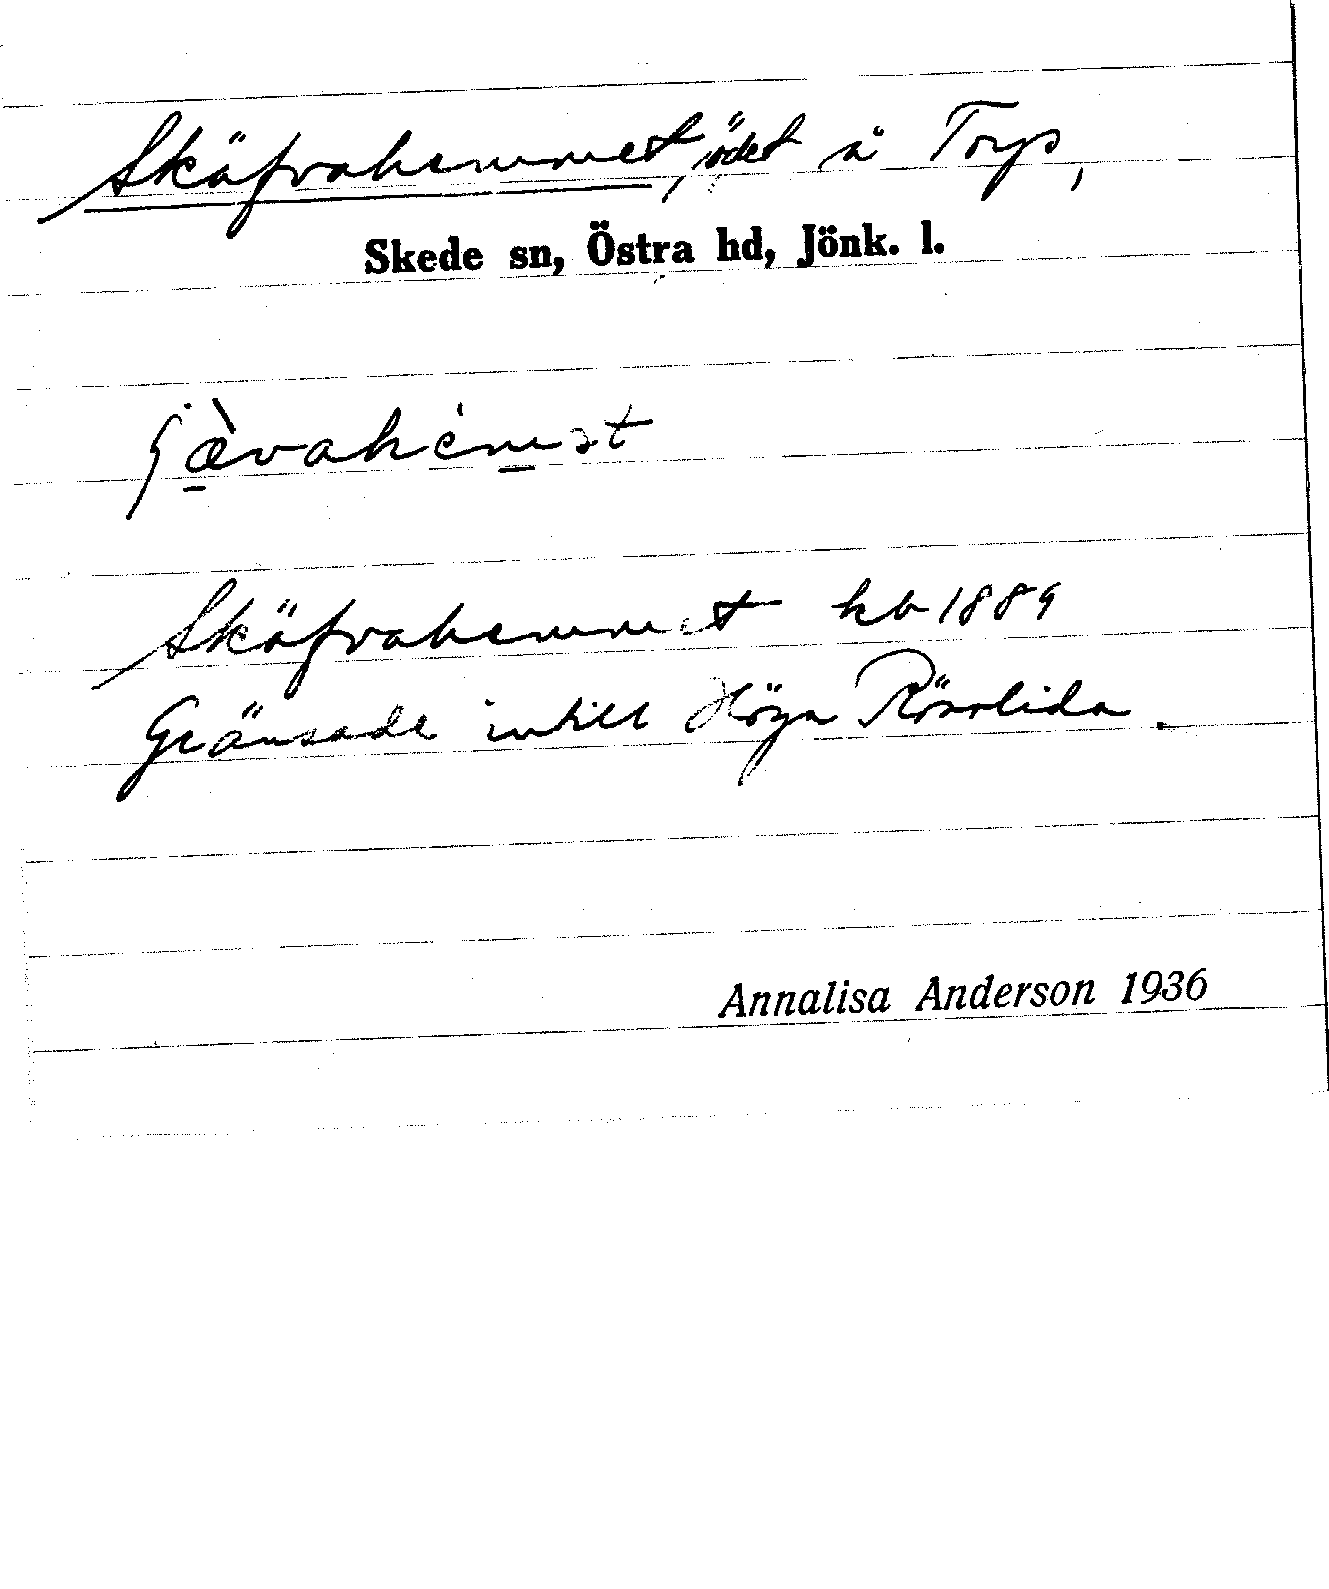 Skäfvahemmet, ödet å Torp,
Skede sn, Östra hd, Jönk. l.
Skäfvahemmet kb 1889
Gränsade intill Höga Röslida.
Annalisa Anderson 1936